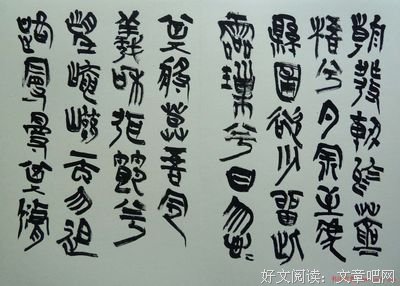 朝發軔於蒼
梧兮夕余至乎
縣圃欲少留此
靈瑣兮日忽〻
其將莫吾令
羲和弭節兮
望崦嵫而勿迫
路曼曼其脩
好文阅读:文章吧网